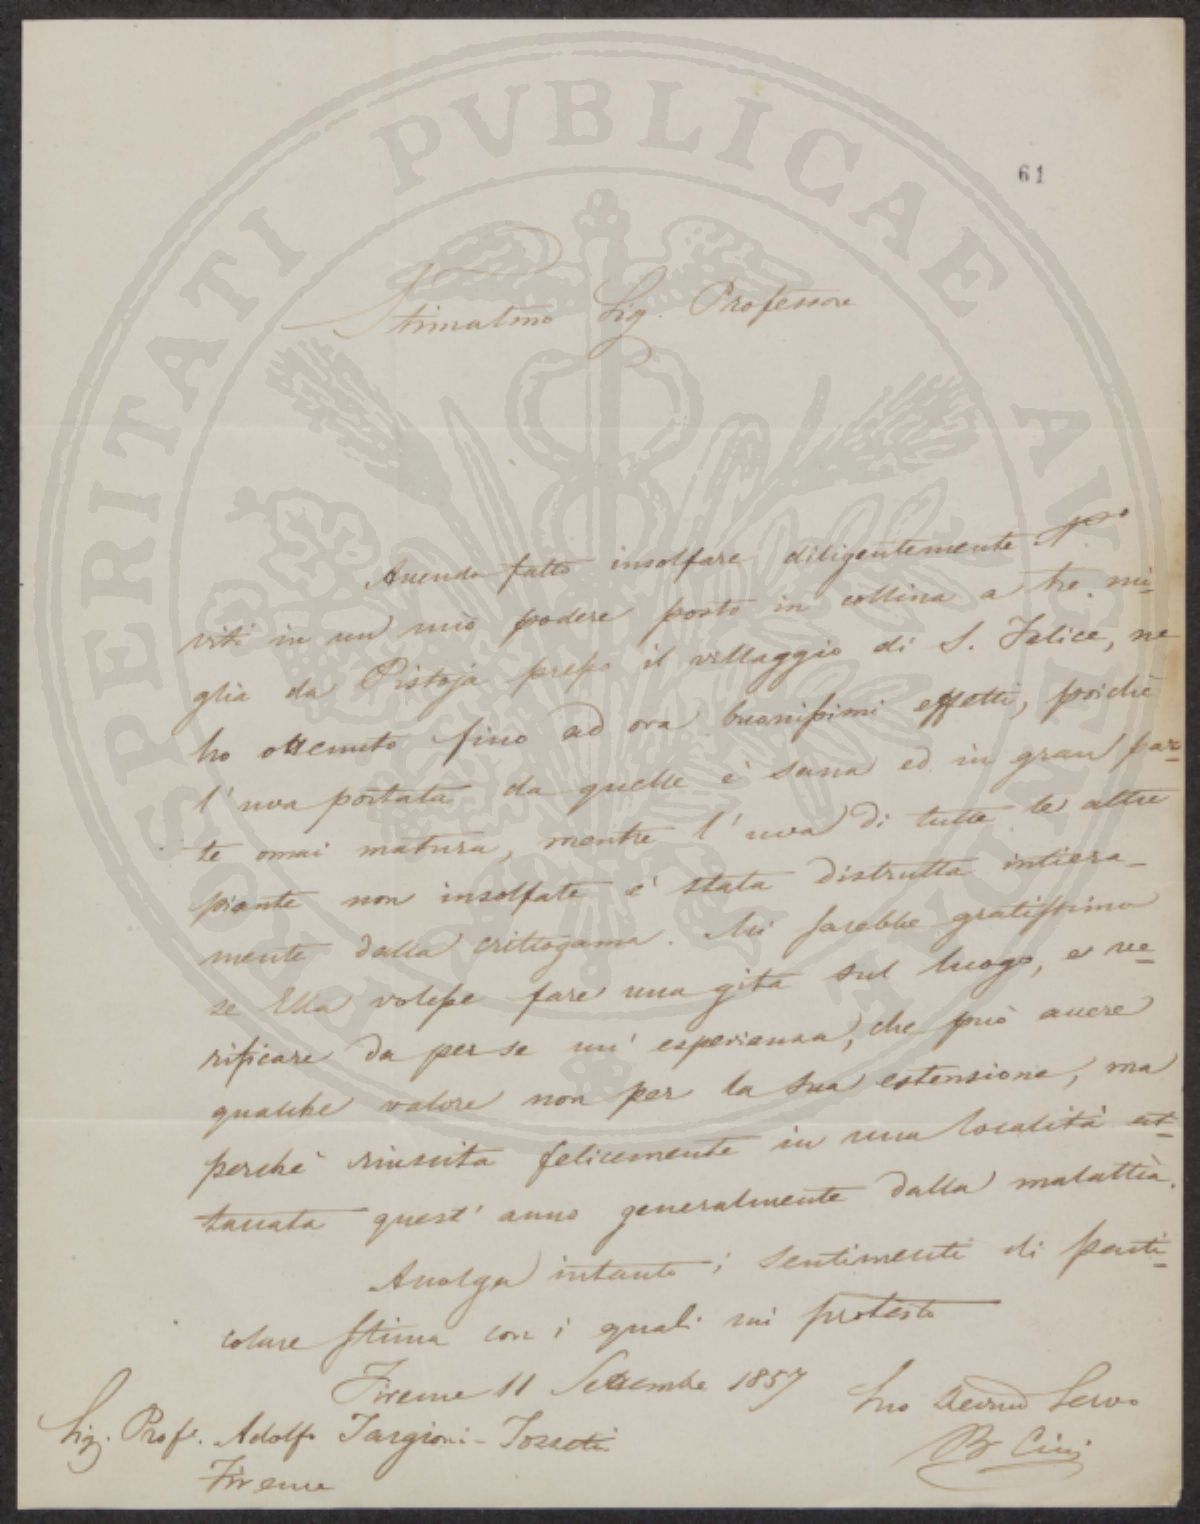 61
Stimatmo Sig. Professore
Avendo fatto insolfare diligentemente
viti in un mio podere posto in collina a tre mi-
glia da Pistoja presso il villaggio di S. Felice, ne
ho ottenuto fino ad ora buonissimi effetti, poichè
l'uva portata da quelle è sana ed in gran par-
te omai matura, mentre l'uva di tutte le altre
piante non insolfate è stata distrutta intiera-
mente dalla crittogama. Mi sarebbe gratissimo
se Ella volesse fare una gita sul luogo, e ve-
rificare da per se un' esperienza, che può avere
qualche valore non per la sua estensione, ma
perchè riuscita felicemente in una località at-
taccata quest' anno generalmente dalla malattia.
Accolga intanto i sentimenti di parti-
colare stima con i quali mi protesto
Firenze 11 Settembre 1857
Suo Devmo Servo
B Cini
Sig. Profe. Adolfo Targioni-Tozzetti
Firenze
PROSPERITATI PVBLICAE AVGENDAE